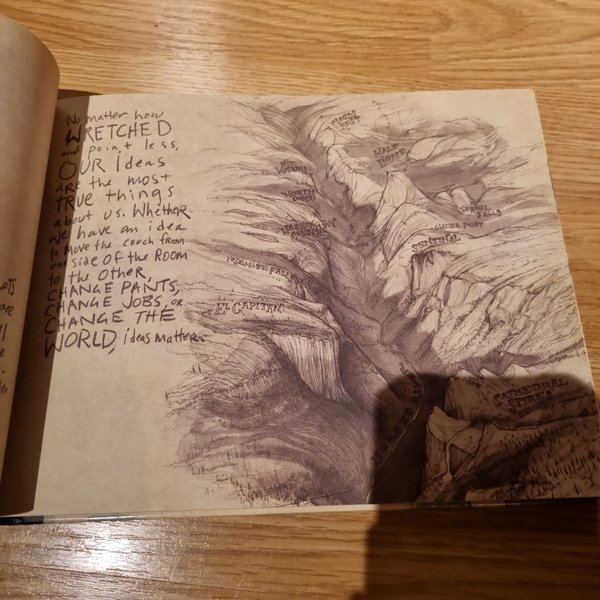 No matter how
WRETCHED
and point less,
OUR ideas
are the most
TRUE things
about us. Whether
we have an idea
to move the couch from
one side of the ROOM
to the other,
CHANGE PANTS,
CHANGE JOBS, or
CHANGE THE
WORLD, ideas matter.
CLOUDS
REST
HALF
DOME
NORTH
DOME
WASHINGTON
COLUMN
VERNAL
FALLS
GLACIER POINT
SENTINEL
YOSEMITE FALLS
EL CAPITAN
CATHEDRAL
SPIRES
are